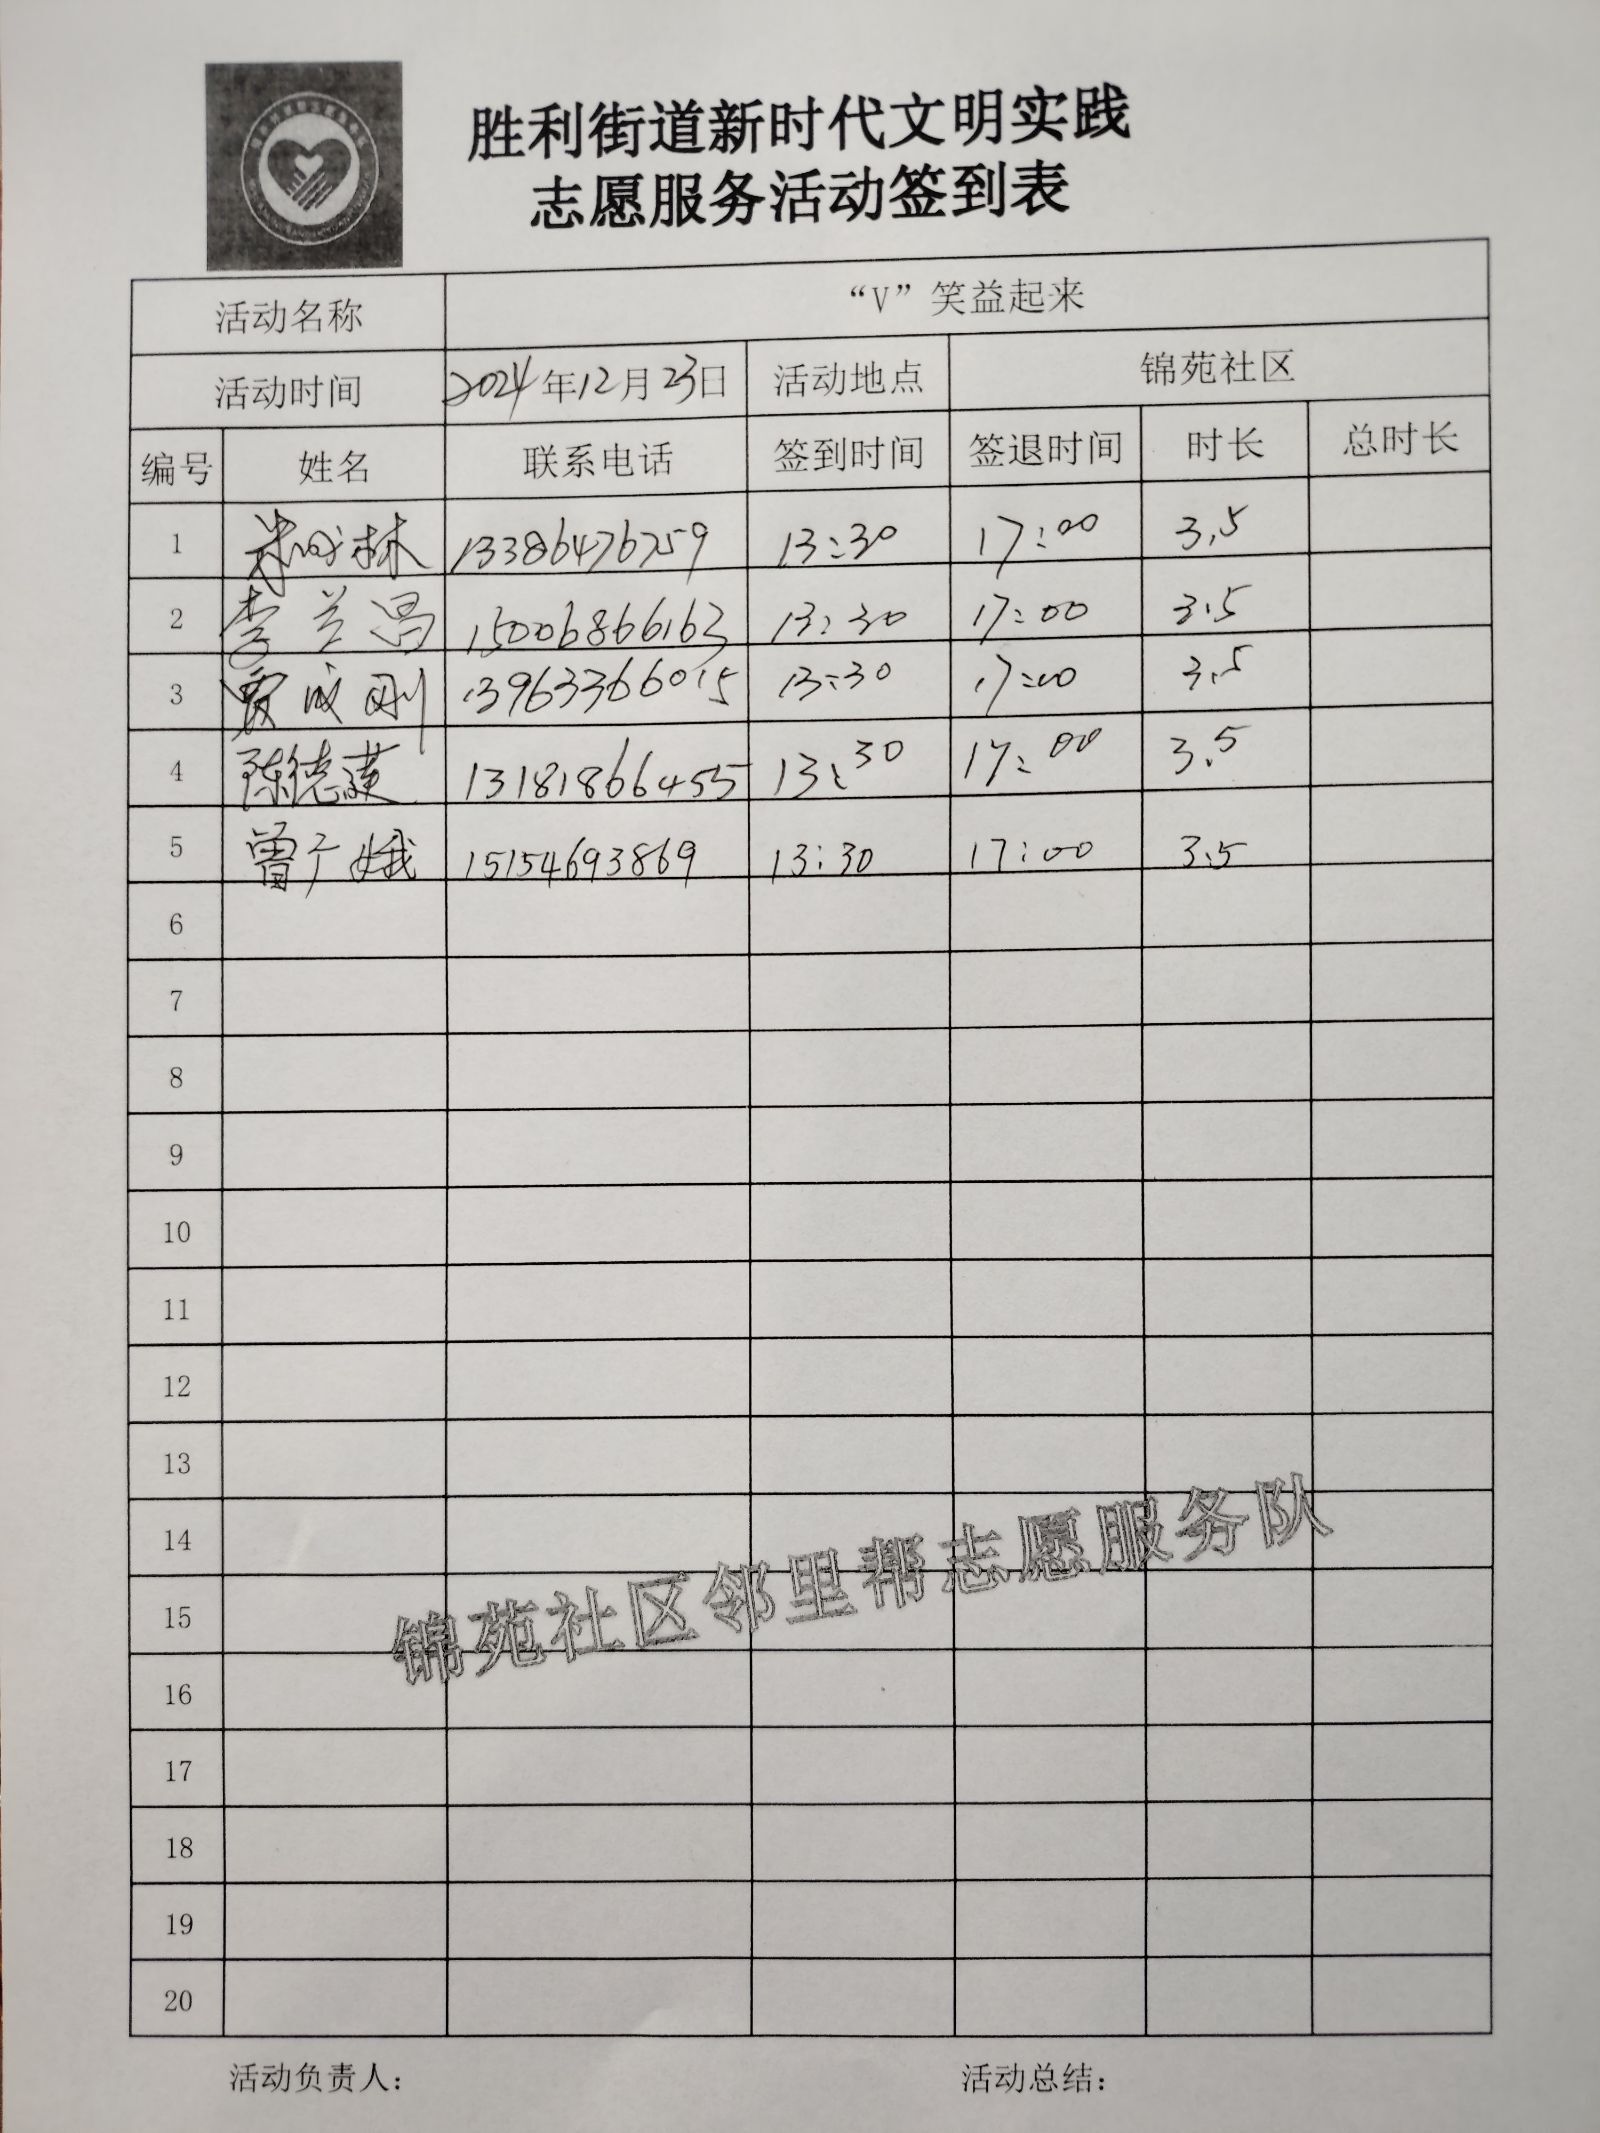 胜利街道新时代文明实践
志愿服务活动签到表
活动名称 “V”笑益起来
活动时间 2024年12月23日 活动地点 锦苑社区
编号 姓名 联系电话 签到时间 签退时间 时长 总时长
1 13386476759 13:30 17:00 3.5
2 李兰昌 15006866163 13:30 17:00 3.5
3 贾成刚 13963366015 13:30 17:00 3.5
4 陈德 13181866455 13:30 17:00 3.5
5 曾广娥 15154693869 13:30 17:00 3.5
6
7
8
9
10
11
12
13
14
15
锦苑社区邻里帮志愿服务队
16
17
18
19
20
活动负责人： 活动总结：